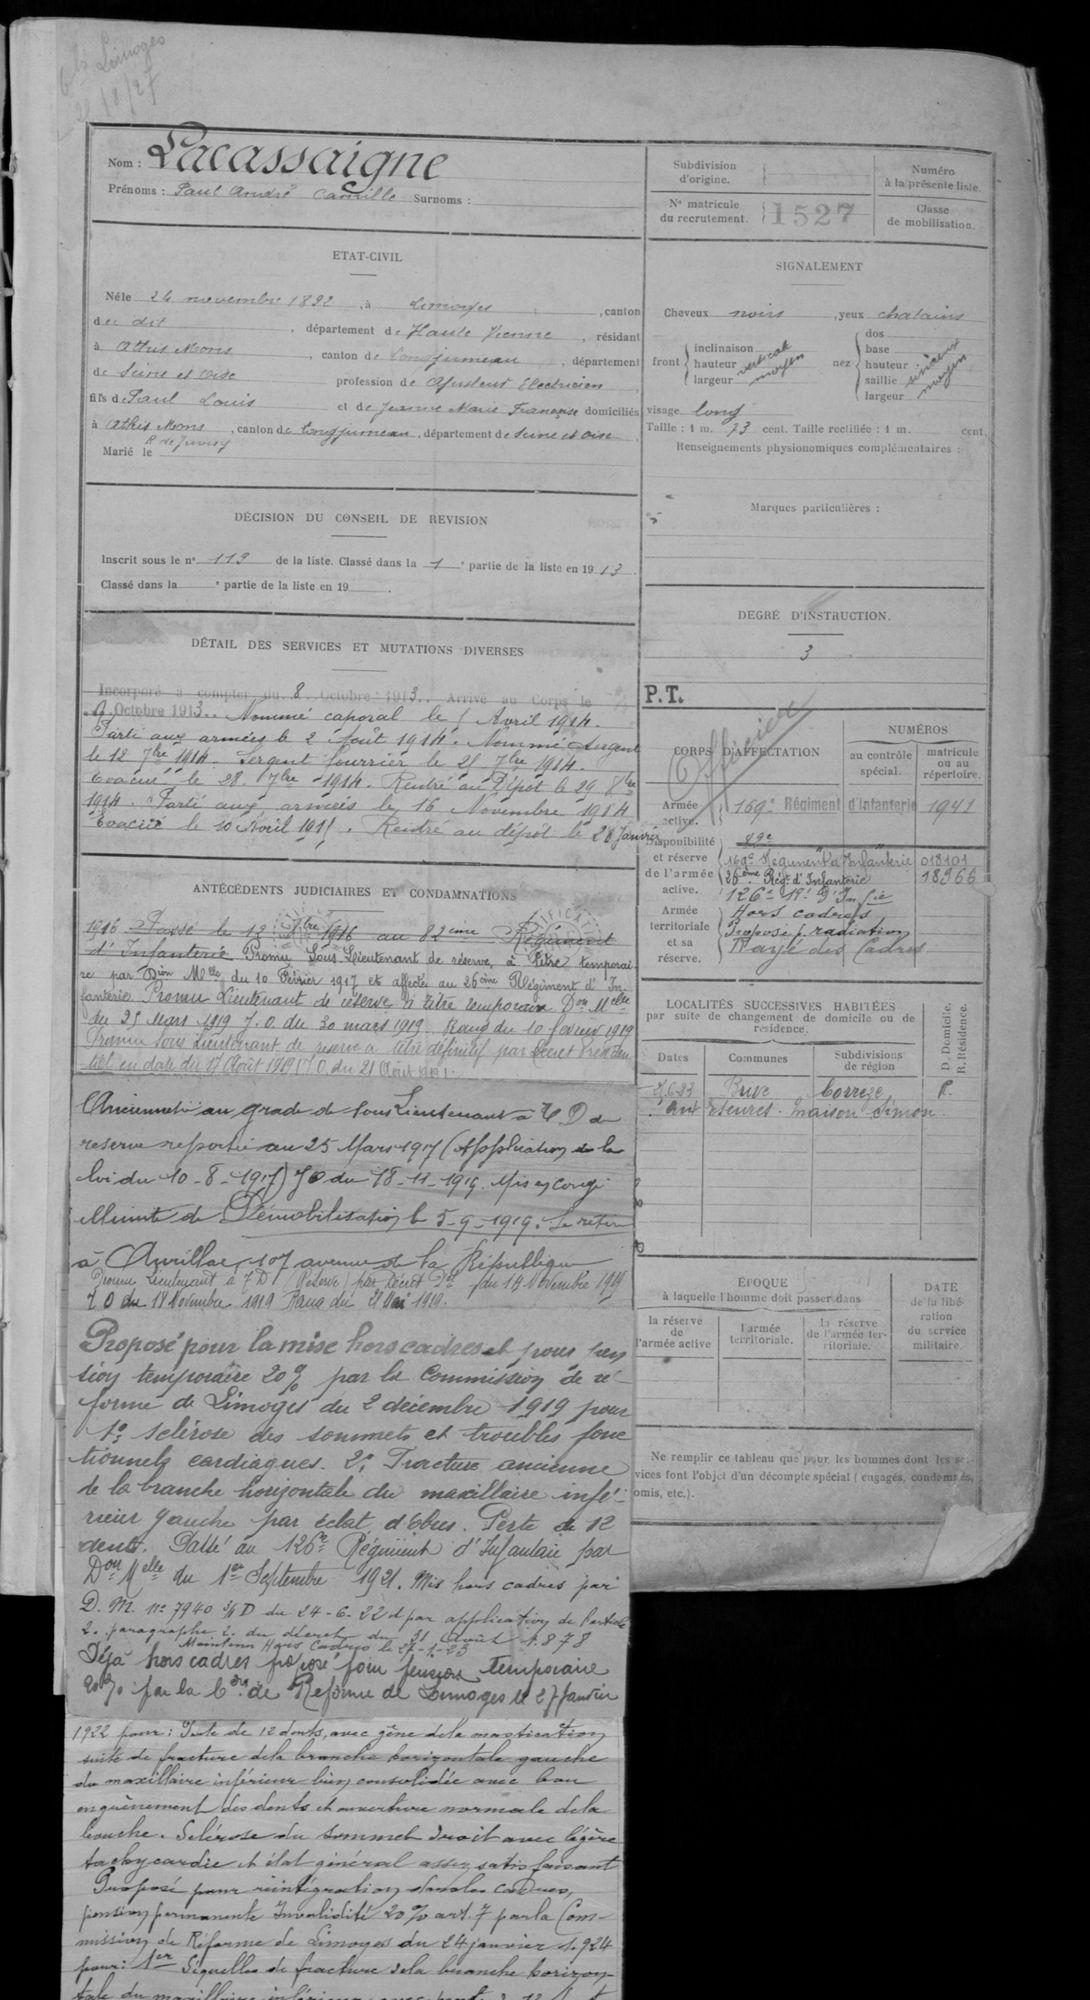 Cls Limoges
Nom : Lacassaigne
Prénoms : Paul André Camille Surnoms :
Subdivision
d'origine.
Numéro
à la présente liste.
Nº matricule
du recrutement.
1527
Classe
de mobilisation.
ETAT-CIVIL
Né le 24 novembre 1892, à Limoges, canton
du dit, département de Haute Vienne, résidant
à Athis Mons, canton de Longjumeau, département
de Seine et Oise profession de Ajusteur Electricien
fils de Paul Louis et de Jeanne Marie Françoise domiciliés
à Athis Mons, canton de Longjumeau, département de Seine et Oise
R de Juvisy
Marié le
SIGNALEMENT
Cheveux noirs, yeux chatains
front { inclinaison vertical
hauteur
largeur moyen
nez { dos
base
hauteur
saillie
largeur moyen
visage long
Taille : 1 m. 73 cent. Taille rectifiée : 1 m. cent.
Renseignements physionomiques complémentaires :
Marques particulières :
DÉCISION DU CONSEIL DE REVISION
Inscrit sous le nº 113 de la liste. Classé dans la 1 e partie de la liste en 1913.
Classé dans la e partie de la liste en 19 .
DEGRÉ D'INSTRUCTION.
3
DÉTAIL DES SERVICES ET MUTATIONS DIVERSES
Incorporé à compter du 8 Octobre 1913. Arrivé au Corps le
9 Octobre 1913. Nommé caporal le 5 Avril 1914.
Parti aux armées le 2 Août 1914. Nommé Sergent
le 12 7bre 1914. Sergent fourrier le 25 7bre 1914.
Evacué le 28 7bre 1914. Rentré au Dépot le 29 8bre
1914. Parti aux armées le 16 Novembre 1914
Evacué le 10 Avril 1915. Rentré au dépot le 26 Janvier
ANTÉCÉDENTS JUDICIAIRES ET CONDAMNATIONS
1916 Passé le 13 1916 au 82ème Régiment
d'Infanterie Promu Sous-Lieutenant de réserve, à titre temporai
re par Dion Mlle du 10 Février 1917 et affecté au 26ème Régiment d'In-
fanterie. Promu Lieutenant de réserve à titre temporaire Don Melle
du 25 Mars 1919 J.O. du 30 mars 1919. Rang du 10 février 1919
Promu sous Lieutenant de reserve a titre définitif par Décret Présiden
tiel en date du 17 Août 1919 (J.O. du 21 Août 1919).
Ancienneté au grade de Sous Lieutenant à T D de
reserve reportée au 25 Mars 1917 (Application de la
loi du 10-8-1917) JO du 18-11-1919. Mis en congé
illimité de Démobilisation le 5-9-1919. Se retire
à Aurillac, 107 avenue de la République
Promu Lieutenant à T D (Réserve) par Décret Del du 15 Novembre 1919
J O du 18 Novembre 1919 Rang du 21 Mai 1919.
Proposé pour la mise hors cadres et pour pen
sion temporaire 20% par la Commission de ré-
forme de Limoges du 2 décembre 1919 pour
1º: sclérose des sommets et troubles fonc
tionnels cardiaques. 2º: Fracture ancienne
de la branche horizontale du maxillaire infé-
rieur gauche par éclat d'obus. Perte de 12
dents. Passé au 126e Régiment d'Infanterie par
Don Melle du 1er Septembre 1921. Mis hors cadres par
D. M. nº 7940 3/4 D du 24-6-22 et par application de l'article
2. paragraphe 2. du décret du 31 Août 1878
Maintenu Hors Cadres le 27-1-23
Déjà hors cadres proposé pour pension temporaire
20% par la Con de Réforme de Limoges le 27 Janvier
1922 pour : Perte de 12 dents, avec gêne de la mastication
suite de fracture de la branche horizontale gauche
du maxillaire inférieur bien consolidée avec bon
engrènement des dents et ouverture normale de la
bouche. Sclérose du sommet droit avec légère
tachycardie et état général assez satisfaisant
Proposé pour réintégration dans les Cadres,
pension permanente Invalidité 20% art. 7 par la Com-
mission de Réforme de Limoges du 24 janvier 1.924
pour : 1er Séquelles de fracture de la branche horizon-
tale du maxillaire inférieur avec perte de 12 dents
P.T.
Officier
CORPS D'AFFECTATION
NUMÉROS
au contrôle
spécial.
matricule
ou au
répertoire.
Armée
active.
169e Régiment d'Infanterie 1941
Disponibilité
et réserve
de l'armée
active.
82e
169e Régiment d'Infanterie 018101
26ème Régt d'Infanterie 18966
126e Rt d'Infie
Armée
territoriale
et sa
réserve.
Hors cadres
Proposé p. radiation
Rayé des Cadres
LOCALITÉS SUCCESSIVES HABITÉES
par suite de changement de domicile ou de
résidence.
Dates
Communes
Subdivisions
de région
D. Domicile.
R. Résidence.
Brive Corrèze R.
Maison Simon
ÉPOQUE
à laquelle l'homme doit passer dans
DATE
de la libé-
ration
du service
militaire.
la réserve
de
l'armée active
l'armée
territoriale.
la réserve
de l'armée ter-
ritoriale.
Ne remplir ce tableau que pour les hommes dont les ser-
vices font l'objet d'un décompte spécial (engagés, condamnés,
omis, etc.).